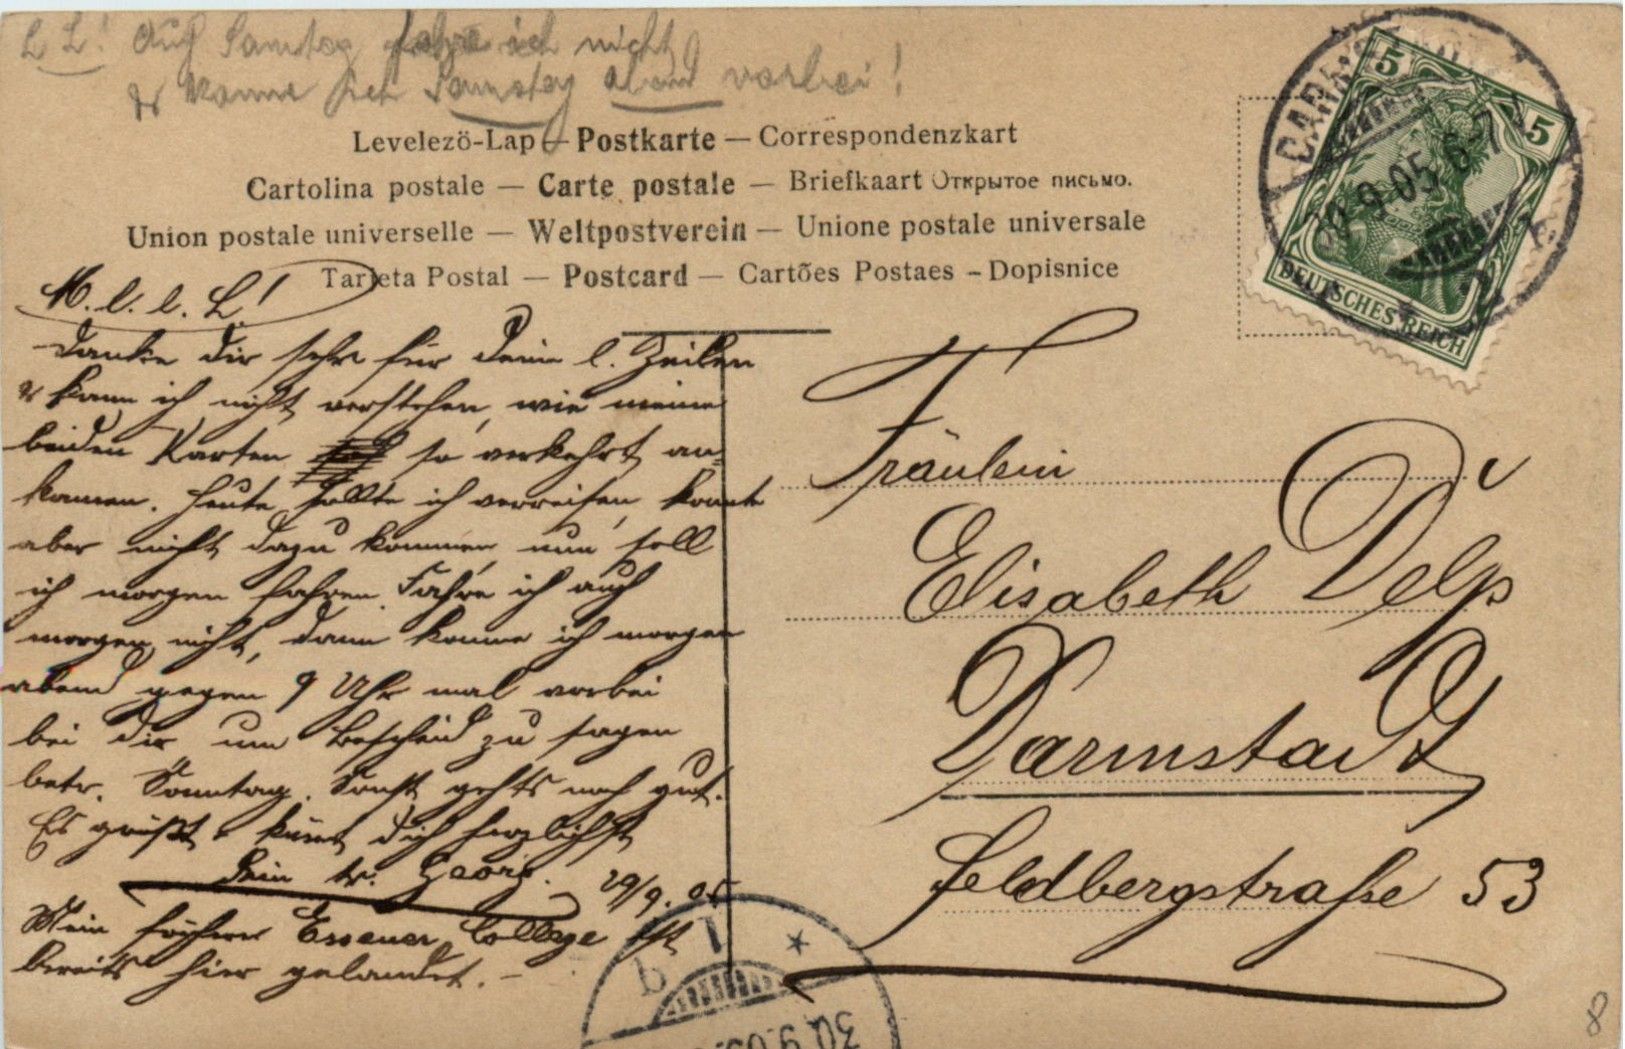 L L! Auf Samstag fahre ich nicht
& komme ich Samstag Abend vorbei!
Levelező-Lap — Postkarte — Correspondenzkart
Cartolina postale — Carte postale — Briefkaart Открытое письмо.
Union postale universelle — Weltpostverein — Unione postale universale
Tarjeta Postal — Postcard — Cartões Postaes – Dopisnice
M. l. l. L!
Danke dir sehr für deine l. Zeilen
& kann ich nicht verstehen, wie meine
beiden Karten so verkehrt an-
kamen. Heute sollte ich verreisen, konnte
aber nicht dazu kommen, nun soll
ich morgen fahren. Fahre ich auch
morgen nicht, dann komme ich morgen
abend gegen 9 Uhr mal vorbei
bei dir um Bescheid zu sagen
betr. Sonntag. Sonst gehts noch gut.
Es grüßt & küsst dich herzlichst
Dein tr. Georg. 29/9. 05
Mein früherer Essener College ist
bereits hier gelandet. –
Fräulein
Elisabeth Delp
Darmstadt
Feldbergstraße 53
5 5
DEUTSCHES REICH
DARMSTADT
9 05 6-7 N
b 1 *
30.9.05
8